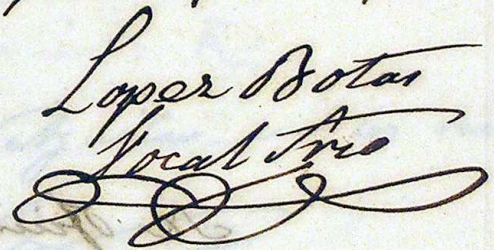 Lopez Botas
Vocal Srio